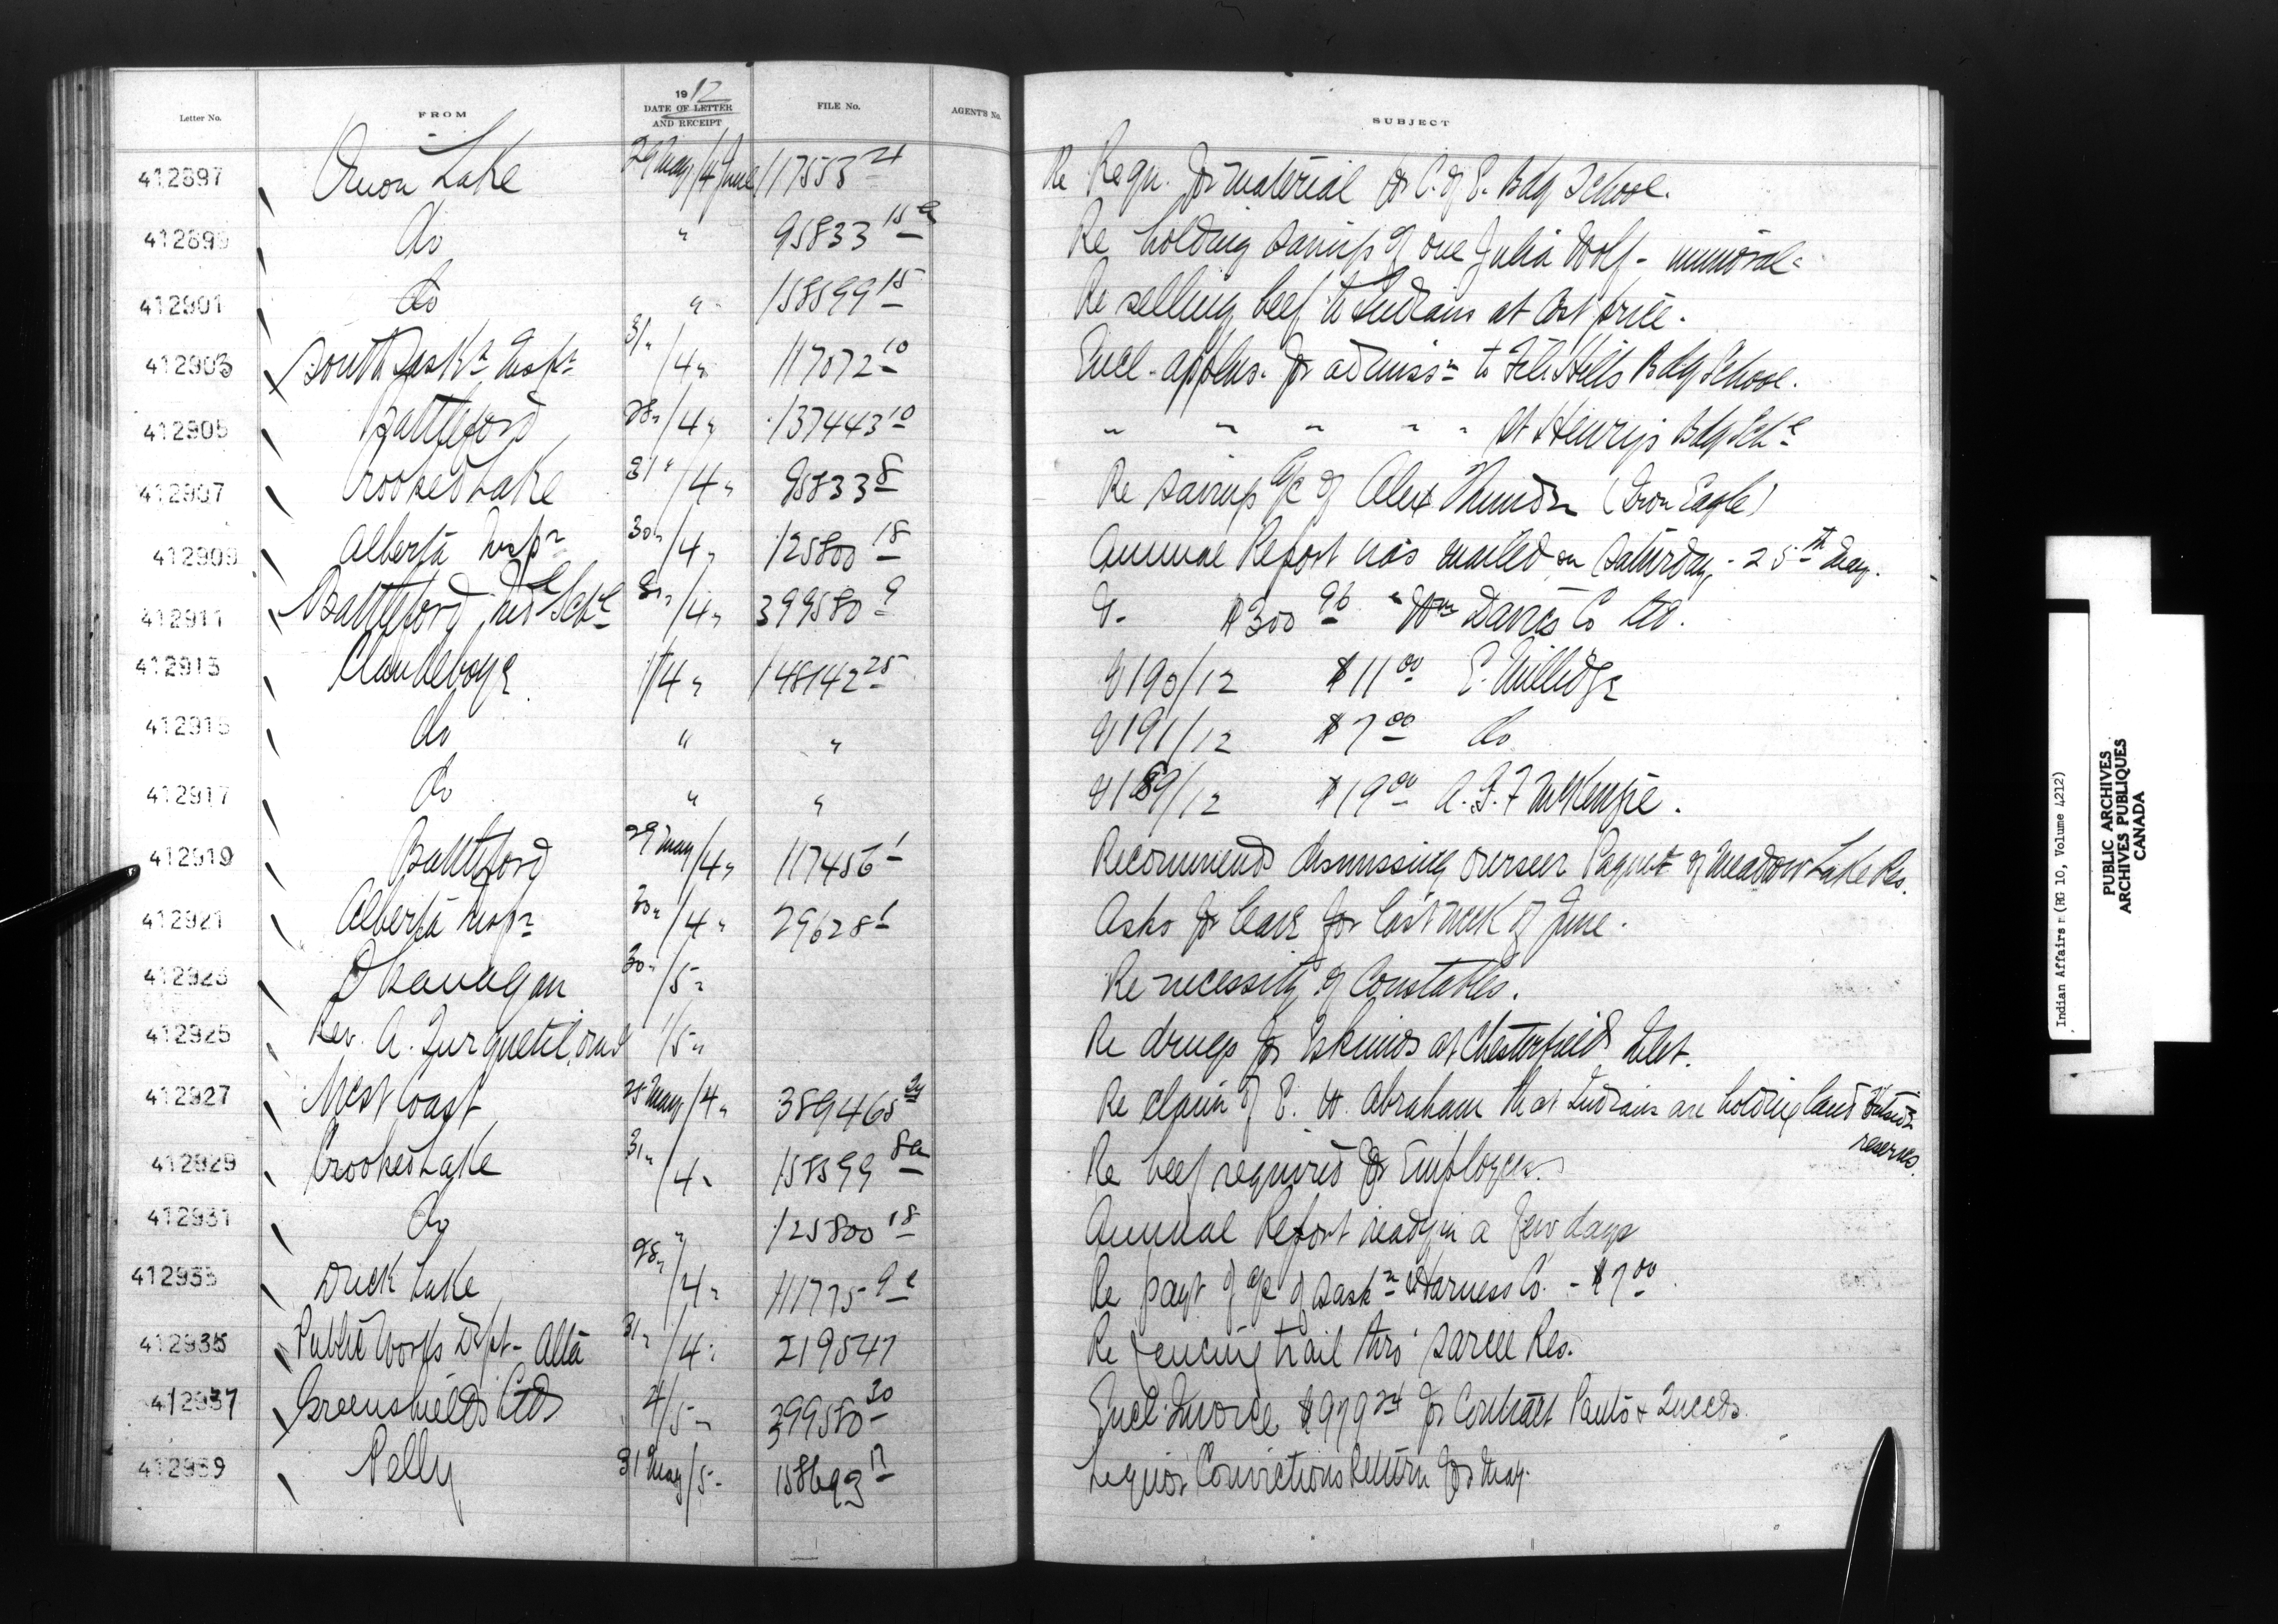 Letter No. FROM 1912 DATE OF LETTER AND RECEIPT FILE No. AGENT'S No. SUBJECT
412897 Onion Lake 29 May/4 June 117553 24 Re Reqn. for material for C. of E. Bdg School.
412899 do " 95833 15a Re holding savings of one Julia Wolf - immoral -
412901 do " 158599 15 Re selling beef to Indians at Cost price.
412903 South Saskn Inspn 31 "/4 " 117072 10 Encl. applens. for admissn to File Hills Bdg School.
412905 Battleford 28 "/4 " 137443 10 " " " " " St Henry's Bdg Schl
412907 Crooked Lake 31 "/4 " 95833 8 Re savings a/c of Alex Thunder (Iron Eagle)
412909 Alberta Inspn 30 "/4 " 125800 18 Annual Report was mailed on Saturday - 25th May.
412911 Battleford Indl Schl 31 "/4 " 399580 9 V- $300 96 " Wm Davies Co Ltd.
412913 Clandeboye 1/4 " 148142 25 V 190/12 $11 00 E. Millidge
412915 do " " V 191/12 $7 00 do
412917 do " " V 189/12 $19 00 A. G. F McKenzie.
412919 Battleford 29 May/4 " 117456 1 Recommends dismissing overseer Paquet of Meadow Lake Res.
412921 Alberta Inspn 30 "/4 " 29628 1 Asks for leave for last week of June.
412923 Okanagan 30 "/5 " Re necessity of Constables.
412925 Rev. A. Turquetil, omi 1/5 " Re drugs for Eskimos at Chesterfield Inlet.
412927 West Coast 25 May/4 " 389465 Re claim of E. W. Abraham that Indians are holding land outside
reserves.
412929 Crooked Lake 31 "/4 " 158599 8a Re beef required for Employees.
412931 do " 125800 18 Annual Report ready in a few days
412933 Duck Lake 28 "/4 " 111775 9e Re payt of a/c of Saskn Harness Co. - $7 00
412935 Public Works Dept - Alta 31 "/4 " 219547 Re fencing trail thro' Sarcee Res.
412937 Greenshields Ltd 4/5 " 399580 30 Encl. Invoice $979 24 for Contract Pants & Tweeds.
412939 Pelly 31 May/5 " 158693 17 Liquor Convictions Return for May.
Indian Affairs (RG 10, Volume 4212)
PUBLIC ARCHIVES
ARCHIVES PUBLIQUES
CANADA